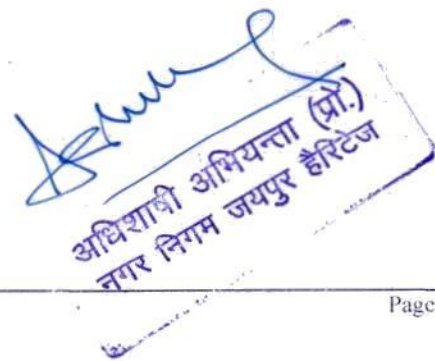 अधिशाषी अभियन्ता (प्रो.)
नगर निगम जयपुर हैरिटेज
Page